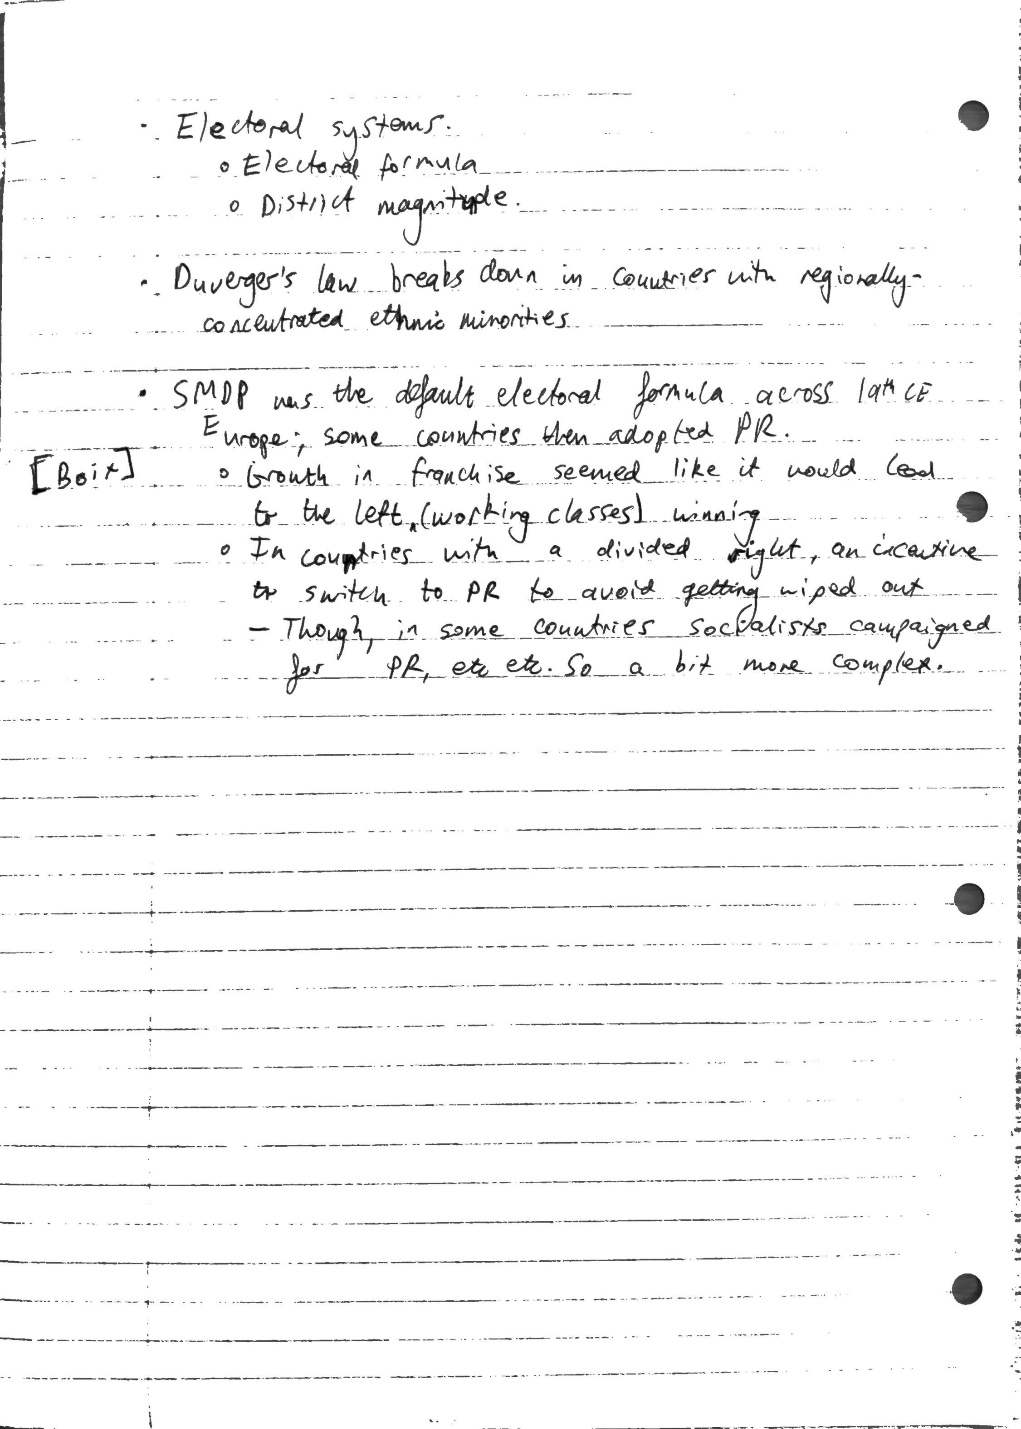 · Electoral systems.
o Electoral formula
o District magnitude.
· Duverger's law breaks down in countries with regionally-
concentrated ethnic minorities
· SMDP was the default electoral formula across 19th CE
Europe; some countries then adopted PR.
[Boix] o Growth in franchise seemed like it would lead
to the left (working classes) winning
o In countries with a divided right, an incentive
to switch to PR to avoid getting wiped out
– Though, in some countries socialists campaigned
for PR, etc etc. So a bit more complex.